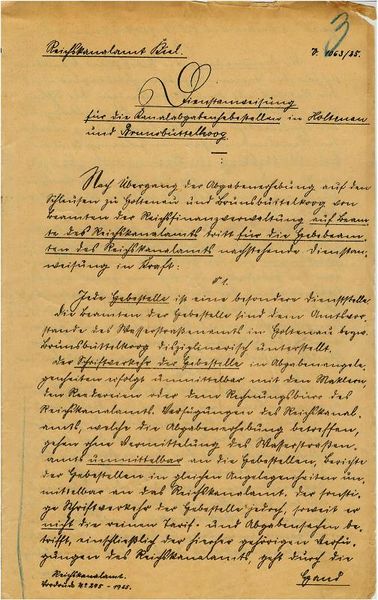 3
Reichskanalamt Kiel.
J. 1063/35.
Dienstanweisung
für die Kanalabgabenhebestellen in Holtenau
und Brunsbüttelkoog.
Nach Übergang der Abgabenerhebung auf den
Schleusen zu Holtenau und Brunsbüttelkoog von
Beamten der Reichsfinanzverwaltung auf Beam-
te des Reichskanalamts tritt für die Hebebeam-
ten des Reichskanalamts nachstehende Dienstan-
weisung in Kraft:
§ 1.
Jede Hebestelle ist eine besondere Dienststelle,
die Beamten der Hebestelle sind dem Amtsvor-
stande des Wasserstraßenamts in Holtenau bezw.
Brunsbüttelkoog disziplinerisch unterstellt.
Der Schriftverkehr der Hebestelle in Abgabenangele-
genheiten erfolgt unmittelbar mit den Maklern,
den Reedereien oder dem Rechnungsbüro des
Reichskanalamts. Verfügungen des Reichskanal-
amts, welche die Abgabenerhebung betreffen,
gehen ohne Vermittelung des Wasserstraßen-
amts unmittelbar an die Hebestellen, Berichte
der Hebestellen in gleichen Angelegenheiten un-
mittelbar an das Reichskanalamt, der sonsti-
ge Schriftverkehr der Hebestelle jedoch, soweit er
nicht die reinen Tarif- und Abgabensachen be-
trifft, einschließlich der hierher gehörigen Verfü-
gungen des Reichskanalamts, geht durch die
Hand
Reichskanalamt.
Vordruck Nr 205 - 1935.